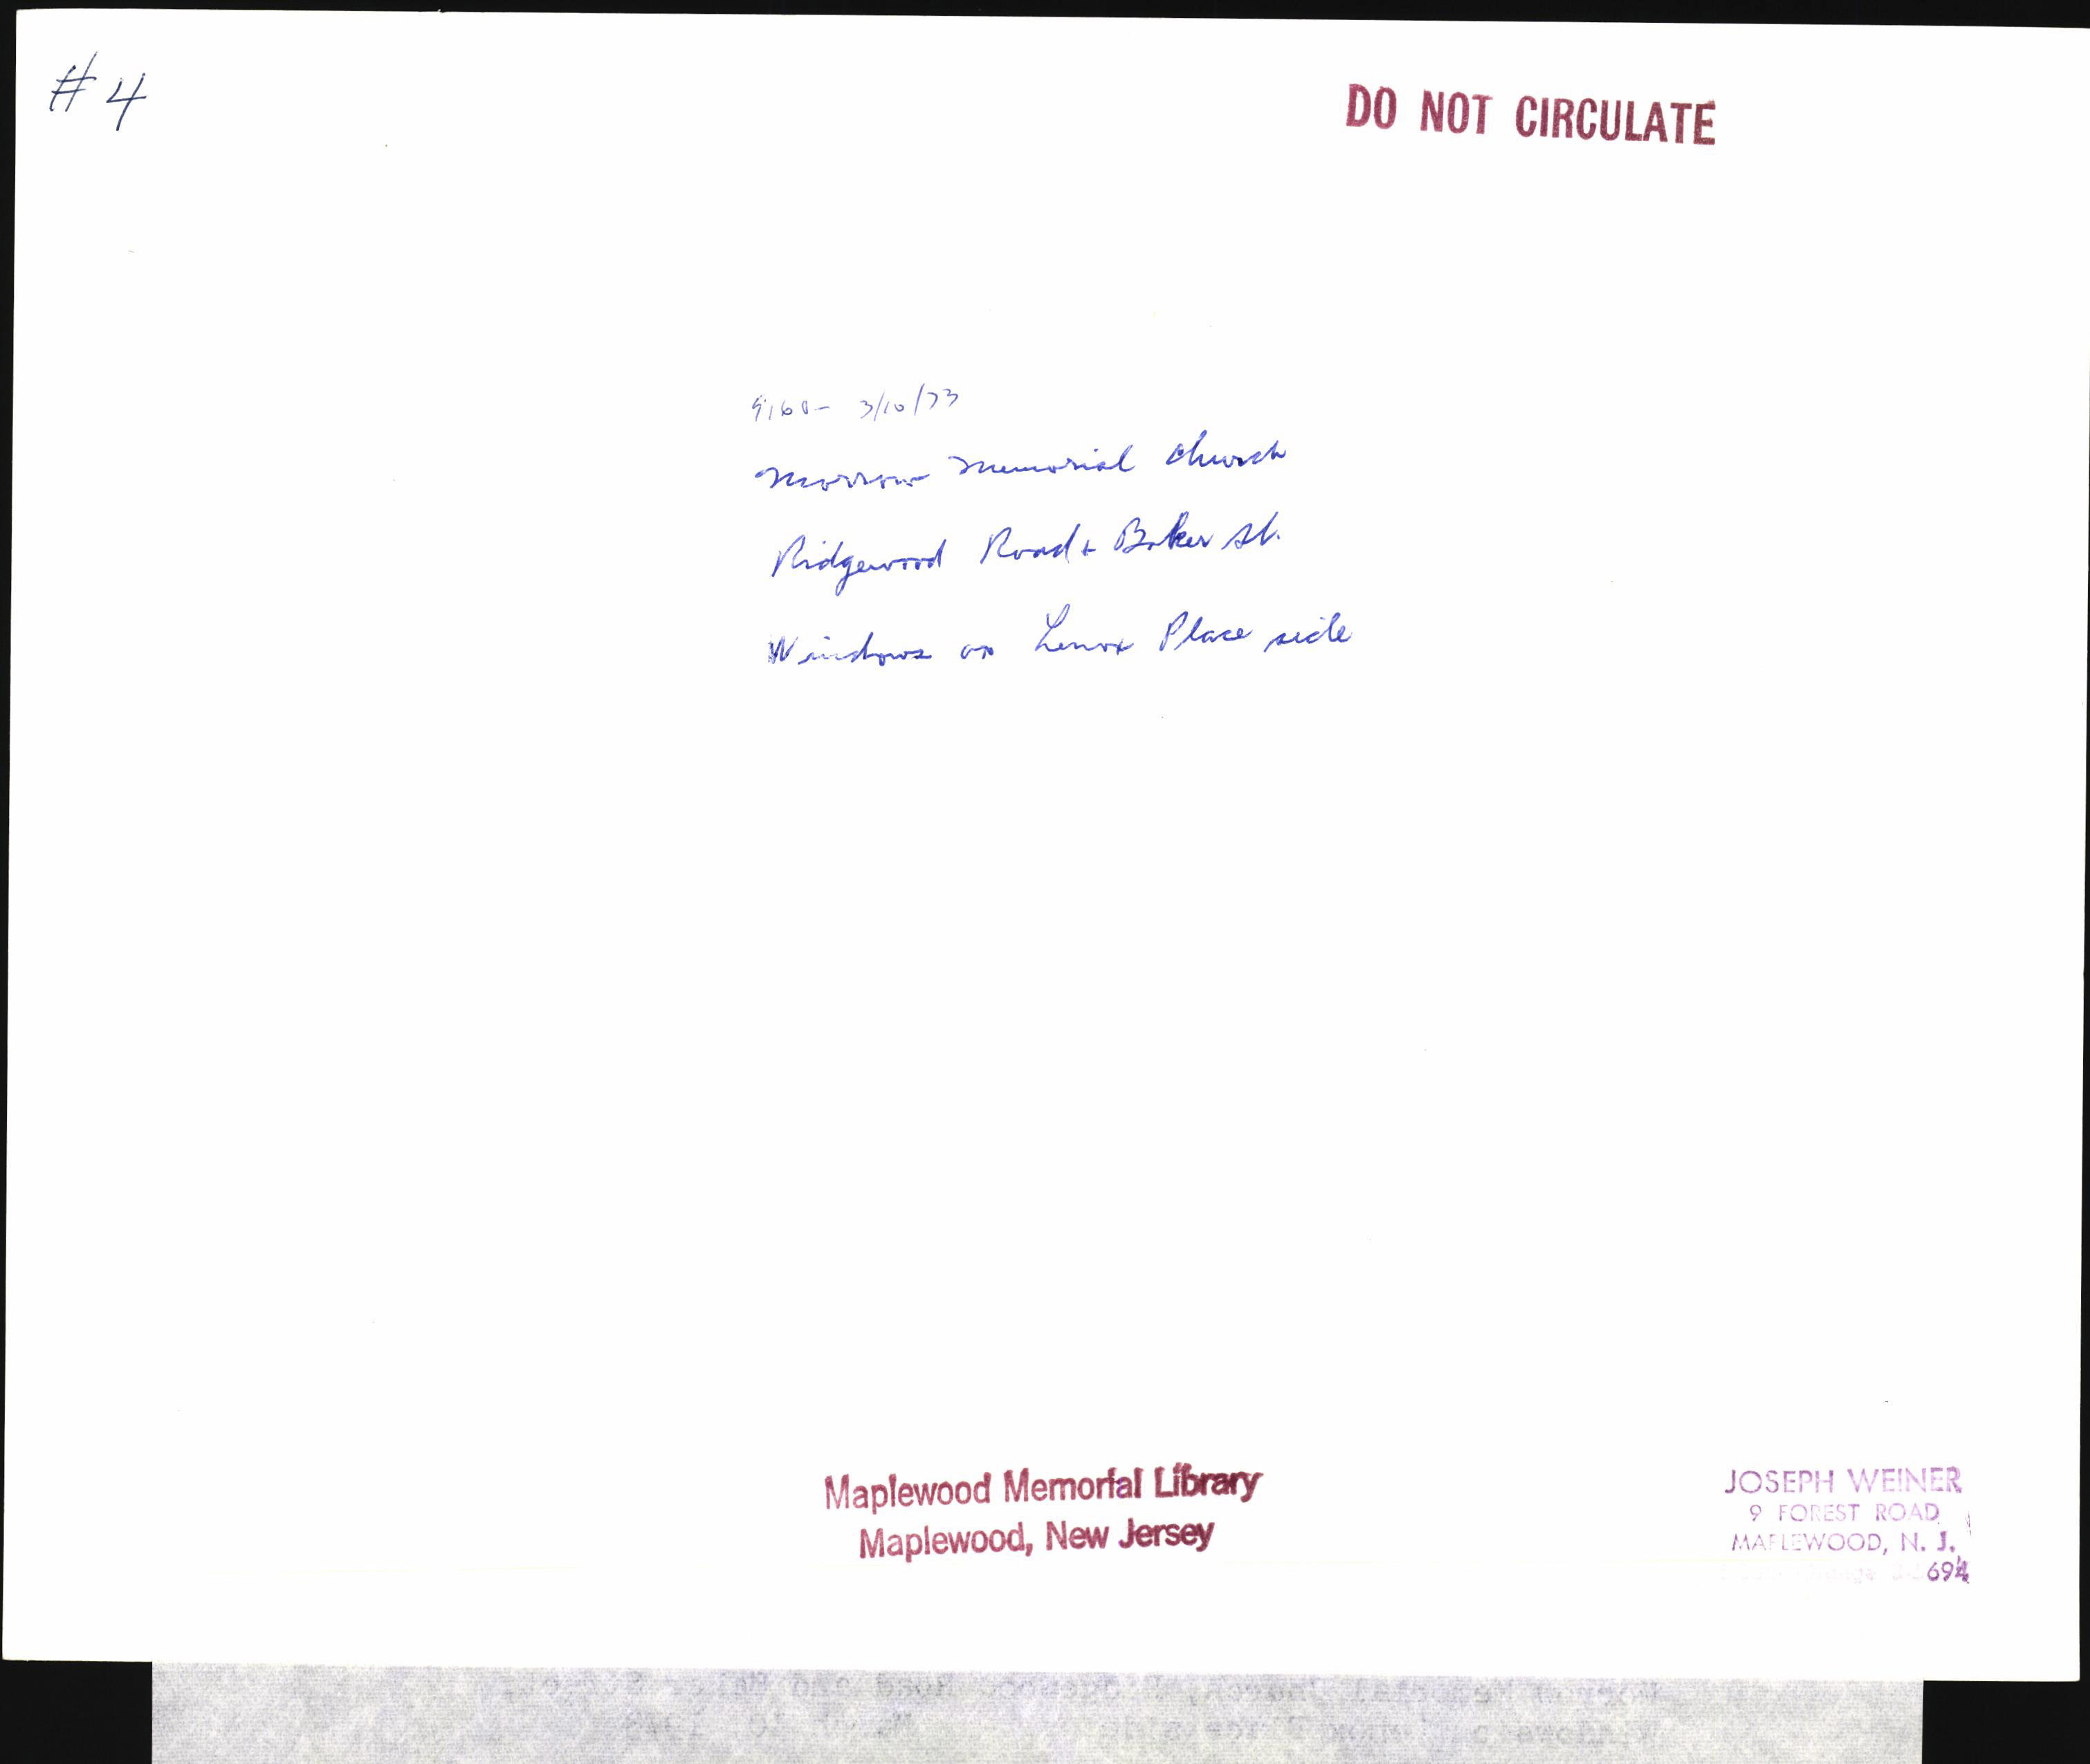 #4
DO NOT CIRCULATE
9160- 3/10/73
Morrow Memorial Church
Ridgewood Road + Baker St.
Windows on Lenox Place side
Maplewood Memorial Library
Maplewood, New Jersey
JOSEPH WEINER
9 FOREST ROAD
MAPLEWOOD, N. J.
694